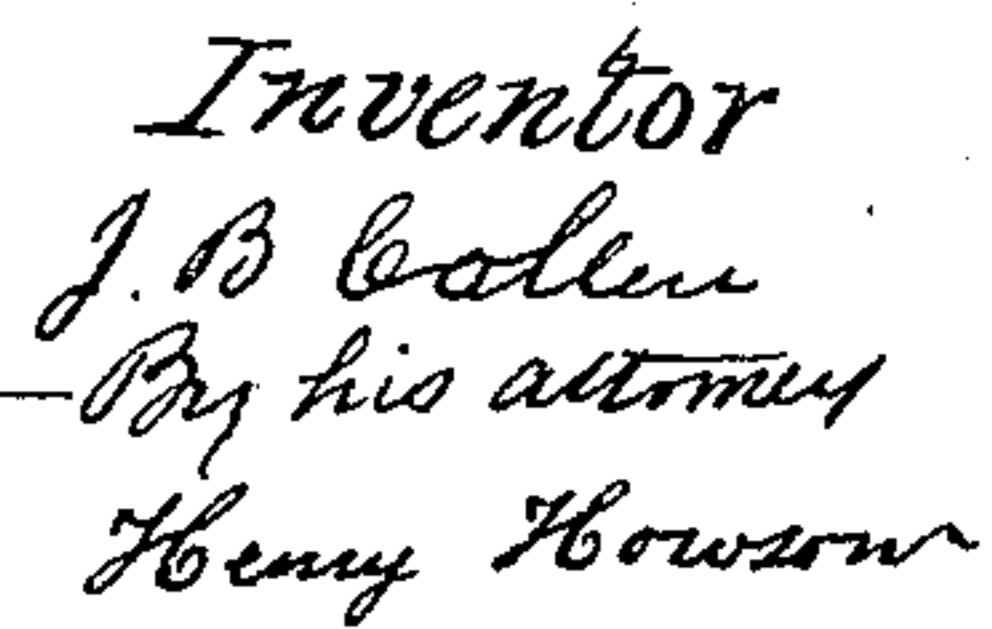 Inventor
J. B Collen
By his attorney
Henry Howson